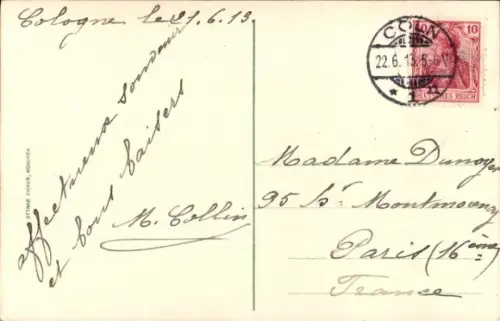 Cologne le 21.6.13.
affectueux souvenir
et bons baisers
M. Collin
CÖLN
22.6.13.5-6
* 1
10
DEUTSCHES REICH
Madame Dunoyer
95 Bd Montmorency
Paris (16ème)
France
OTTMAR ZIEHER, MÜNCHEN